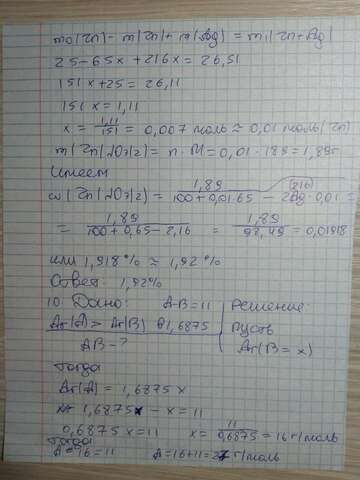 m0(Zn) - m(Zn) + m(Ag) = m1(Zn+Ag)
25 - 65x + 216x = 26,51
151x + 25 = 26,11
151x = 1,11
x = 1,11/151 = 0,007 моль ≈ 0,01 моль (Zn)
m(Zn(NO3)2) = n · M = 0,01 · 189 = 1,89г
Имеем
ω(Zn(NO3)2) = 1,89/(100 + 0,01·65 - 216·0,01) =
= 1,89/(100 + 0,65 - 2,16) = 1,89/98,49 = 0,01918
или 1,918% ≈ 1,92%
Ответ: 1,92%
10 Дано: A-B=11 Решение:
Ar(A) > Ar(B) в 1,6875 Пусть
AB - ? Ar(B = x)
Тогда
Ar(A) = 1,6875x
1,6875x - x = 11
0,6875x = 11 x = 11/0,6875 = 16 г/моль
Тогда
A - 16 = 11 A = 16 + 11 = 27 г/моль